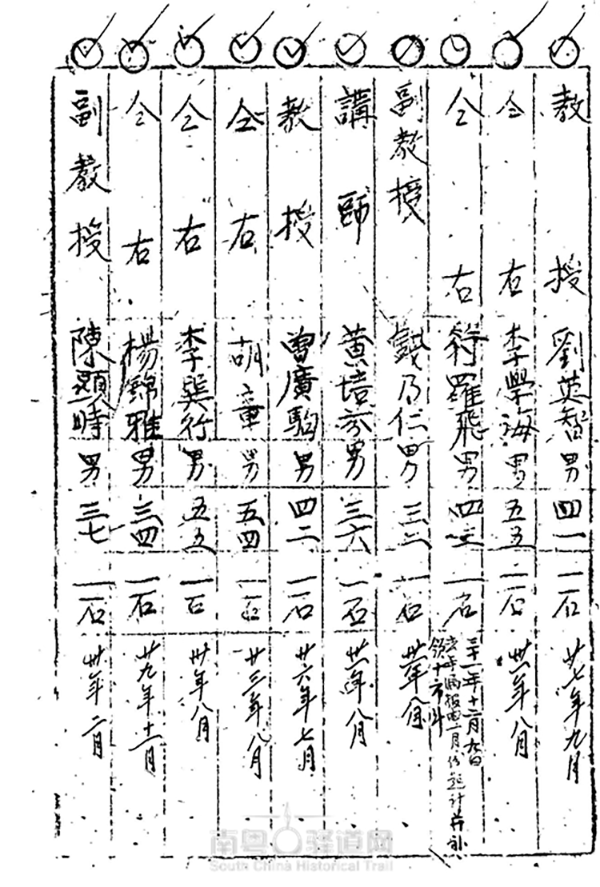 教授 劉英智 男 四一 一石 廿七年九月
仝右 李學海 男 五五 一石 卅一年八月
仝右 符羅飛 男 一石 三十一年十二月九日
副教授 錢乃仁 男 三二 一石
講師 黃培芬 男 三六 一石 卅一年八月
教授 曾廣駒 男 四二 一石 廿六年七月
仝右 胡章 男 五四 一石 廿三年八月
仝右 李巽行 男 五五 一石 卅年八月
仝右 楊錦雅 男 三四 一石 廿九年十一月
副教授 陳顯時 男 三七 一石 卅年二月
南粤驿道网
South China Historical Trail